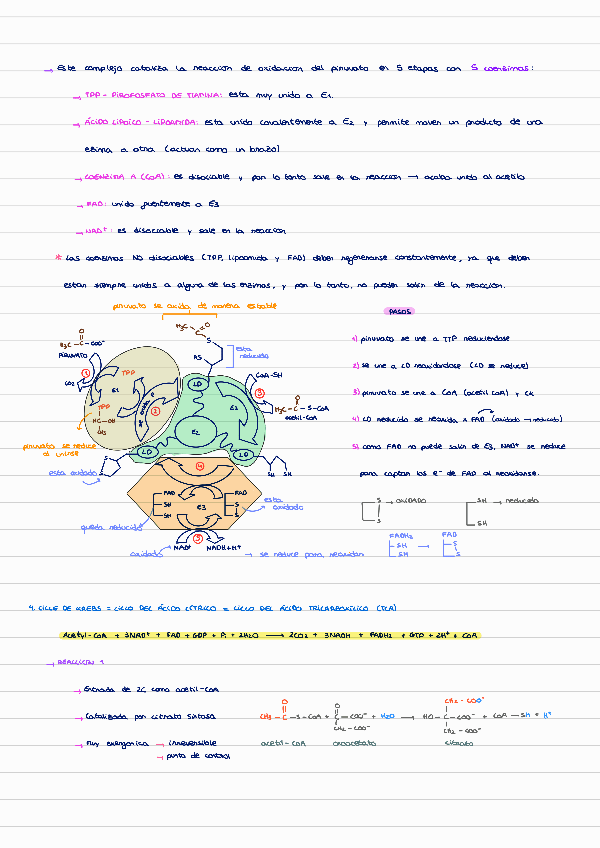 → Este complejo cataliza la reaccion de oxidacion del piruvato en 5 etapas con 5 coenzimas:
→ TPP - PIROFOSFATO DE TIAMINA: esta muy unido a E1.
→ ÁCIDO LIPOICO - LIPOAMIDA: esta unido covalentemente a E2 y permite mover un producto de una
enzima a otra (actuan como un brazo)
→ COENZIMA A (CoA): es disociable y por lo tanto sale en la reaccion → acaba unido al acetilo
→ FAD: unido fuertemente a E3
→ NAD+: es disociable y sale en la reaccion
* Las coenzimas NO disociables (TPP, lipoamida y FAD) deben regenerarse constantemente, ya que deben
estar siempre unidos a alguna de las enzimas, y por lo tanto, no pueden salir de la reaccion.
piruvato se oxida de manera estable
PASOS
1) piruvato se une a TTP reduciendose
2) se une a LD reoxidandose (LD se reduce)
3) piruvato se une a CoA (acetil CoA) y
4) LD reducido se reoxida x FAD (oxidado → reducido)
5) como FAD no puede salir de E3, NAD+ se reduce
para captar los e- de FAD al reoxidarse.
H3C C O
S
AS
esta
reducida
O
H3C-C-COO-
PIRUVATO
1
CO2
E1
TPP
TPP
HC-OH
CH3
2
LD
CoA-SH
3
O
H3C-C-S-CoA
acetil-CoA
E1
E2
LD
LD
piruvato se reduce
al unirse
esta oxidado
S
S
SH
SH
4
FAD
SH
SH
E3
FAD
S
S
esta
oxidado
queda reducido
5
oxidado
NAD+
NADH+H+
→ se reduce para reoxidar
S
S
→ OXIDADO
SH
SH
→ reducido
FADH2
SH
SH
→
FAD
S
S
4. CICLE DE KREBS = CICLO DEL ÁCIDO CÍTRICO = CICLO DEL ÁCIDO TRICARBOXÍLICO (TCA)
Acetyl-CoA + 3NAD+ + FAD + GDP + Pi + 2H2O → 2CO2 + 3NADH + FADH2 + GTP + 2H+ + CoA
→ REACCION 1
→ Entrada de 2C como acetil-CoA
→ Catalizada por citrato sintasa
→ Muy exergonica → irreversible
→ punto de control
O
CH3 - C - S-CoA + O
C - COO-
CH2 - COO-
+ H2O → CH2 - COO-
HO - C - COO- + CoA - SH + H+
CH2 - COO-
acetil-CoA oxaacetato citrato